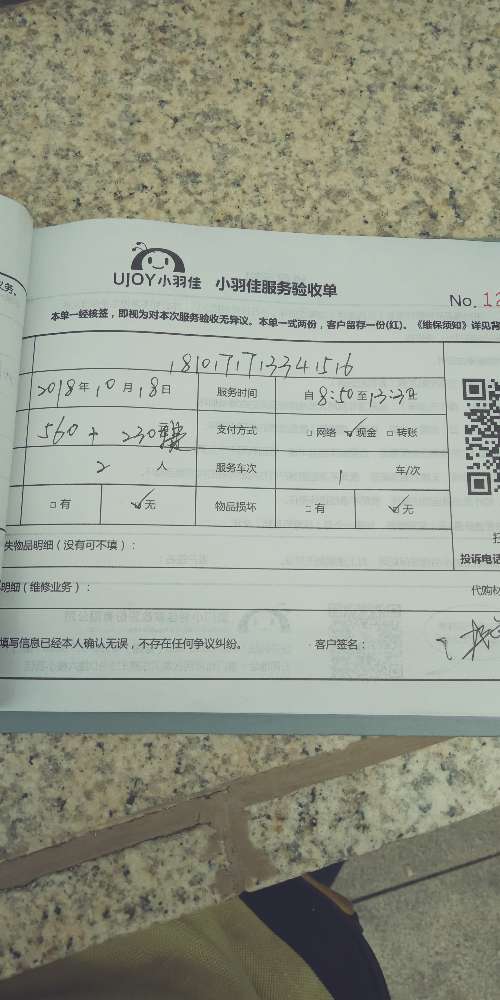 义务、
UJOY小羽佳 小羽佳服务验收单
No. 12
本单一经核签，即视为对本次服务验收无异议。本单一式两份，客户留存一份(红)。《维保须知》详见背
18101713341516
2018年10月18日 服务时间 自8:50至13:30
560+230 支付方式 □网络 ☑现金 □转账
2 人 服务车次 1 车/次
□有 ☑无 物品损坏 □有 ☑无
失物品明细（没有可不填）：
投诉电话
明细（维修业务）： 代购材
填写信息已经本人确认无误，不存在任何争议纠纷。 客户签名：